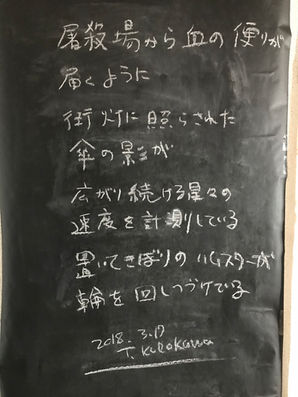 屠殺場から血の便りが
届くように
街灯に照らされた
傘の影が
広がり続ける星々の
速度を計測している
置いてきぼりのハムスターが
輪を回しつづけている
2018. 3.17
T. KUROKAWA